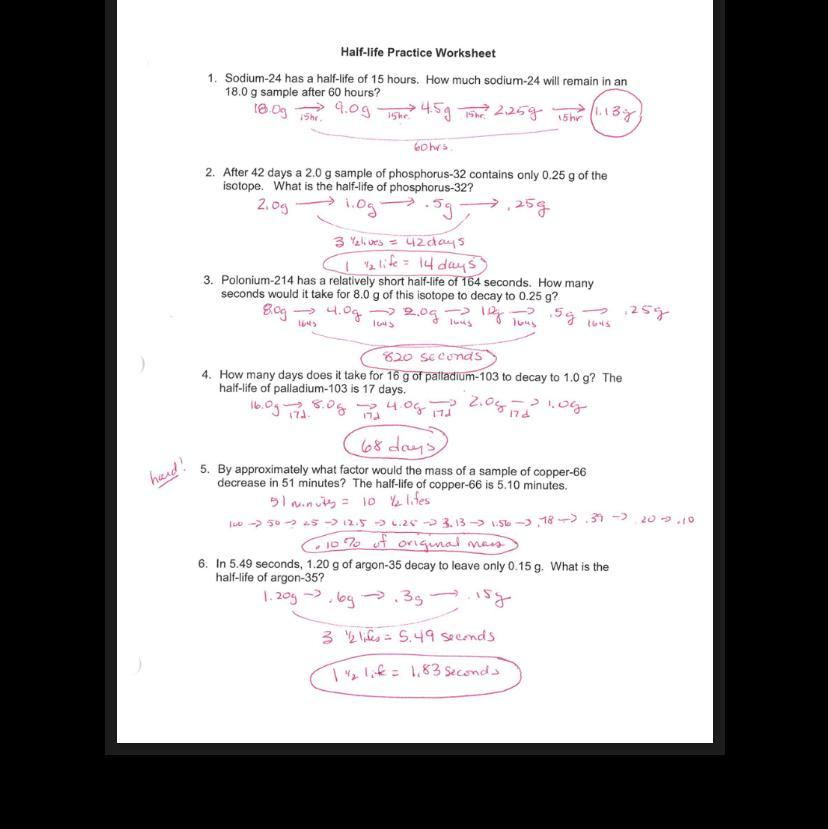 Half-life Practice Worksheet
1. Sodium-24 has a half-life of 15 hours. How much sodium-24 will remain in an
18.0 g sample after 60 hours?
18.0g → 9.0g → 4.5g → 2.25g → 1.13g
15hr. 15hr. 15hr. 15hr
60hrs.
2. After 42 days a 2.0 g sample of phosphorus-32 contains only 0.25 g of the
isotope. What is the half-life of phosphorus-32?
2.0g → 1.0g → .5g → .25g
3 ½ lives = 42days
1 ½ life = 14 days
3. Polonium-214 has a relatively short half-life of 164 seconds. How many
seconds would it take for 8.0 g of this isotope to decay to 0.25 g?
8.0g → 4.0g → 2.0g → 1.0g → .5g → .25g
164s 164s 164s 164s 164s
820 seconds
4. How many days does it take for 16 g of palladium-103 to decay to 1.0 g? The
half-life of palladium-103 is 17 days.
16.0g → 8.0g → 4.0g → 2.0g → 1.0g
17d. 17d 17d 17d
68 days
hard! 5. By approximately what factor would the mass of a sample of copper-66
decrease in 51 minutes? The half-life of copper-66 is 5.10 minutes.
51 minutes = 10 ½ lifes
100 → 50 → 25 → 12.5 → 6.25 → 3.13 → 1.56 → .78 → .39 → .20 → .10
.10% of original mass
6. In 5.49 seconds, 1.20 g of argon-35 decay to leave only 0.15 g. What is the
half-life of argon-35?
1.20g → .6g → .3g → .15g
3 ½ lifes = 5.49 seconds
1 ½ life = 1.83 seconds